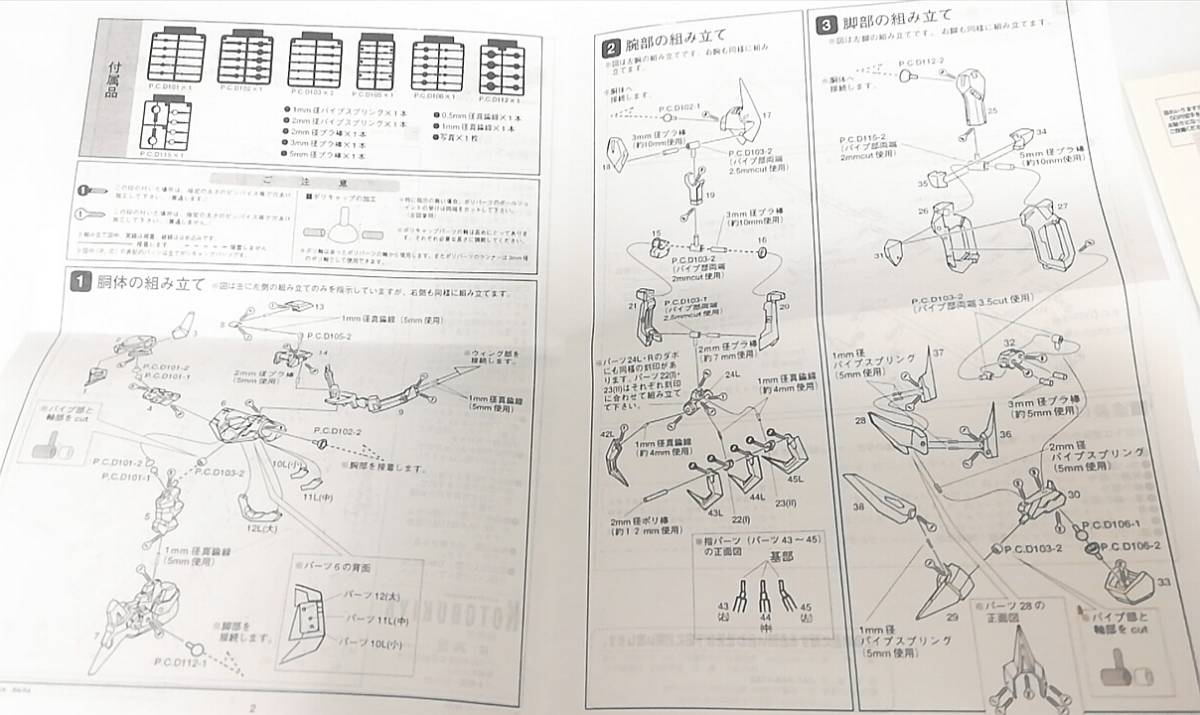 付属品
P.C.D101×1
P.C.D102×1
P.C.D103×2
P.C.D105×1
P.C.D106×1
P.C.D112×1
P.C.D115×1
1mm径パイプスプリング×1本
2mm径パイプスプリング×1本
2mm径プラ棒×1本
3mm径プラ棒×1本
5mm径プラ棒×1本
0.5mm径真鍮線×1本
1mm径真鍮線×1本
写真×1枚
ご注意
ポリキャップの加工
1 胴体の組み立て
※図は主に左側の組み立てのみを指示していますが、右側も同様に組み立てます。
13
1mm径真鍮線(5mm使用)
8
P.C.D105-2
3
14
2
2mm径プラ棒
(5mm使用)
※ウィング部を
接続します。
P.C.D101-2
P.C.D101-1
4
9
1mm径真鍮線
(5mm使用)
※パイプ部と
軸部をcut
6
P.C.D102-2
※胸部を接着します。
P.C.D101-2
P.C.D101-1
P.C.D103-2
10L(小)
11L(中)
12L(大)
5
1mm径真鍮線
(5mm使用)
※パーツ6の背面
パーツ12(大)
パーツ11L(中)
パーツ10L(小)
7
※脚部を
接続します。
P.C.D112-1
2
2 腕部の組み立て
※図は左腕の組み立てです。右腕も同様に組み
立てます。
※胴体へ
接続します。
P.C.D102-1
17
3mm径プラ棒
(約10mm使用)
18
P.C.D103-2
(パイプ部両端
2.5mmcut使用)
19
3mm径プラ棒
(約10mm使用)
15
16
P.C.D103-2
(パイプ部両端
2mmcut使用)
21
P.C.D103-1
(パイプ部両端
2.5mmcut使用)
20
2mm径プラ棒
(約7mm使用)
※パーツ24L・Rのダボ
にも同様の刻印があ
ります。パーツ22(I)・
23(II)はそれぞれ刻印
に合わせて組み立て
て下さい。
24L
1mm径真鍮線
(約4mm使用)
42L
1mm径真鍮線
(約4mm使用)
45L
23(II)
22(I)
43L
44L
2mm径ポリ棒
(約12mm使用)
※指パーツ(パーツ43～45)
の正面図
基部
43
(右)
44
(中)
45
(左)
3 脚部の組み立て
※図は左脚の組み立てです。右脚も同様に組み立てます。
※胴体へ
接続します。
P.C.D112-2
25
P.C.D115-2
(パイプ部両端
2mmcut使用)
34
5mm径プラ棒
(約10mm使用)
35
26
27
31
P.C.D103-2
(パイプ部両端3.5cut使用)
1mm径
パイプスプリング
(5mm使用)
37
32
3mm径プラ棒
(約5mm使用)
28
36
2mm径
パイプスプリング
(5mm使用)
38
30
P.C.D106-1
P.C.D103-2
P.C.D106-2
33
29
1mm径
パイプスプリング
(5mm使用)
※パーツ28の
正面図
※パイプ部と
軸部をcut